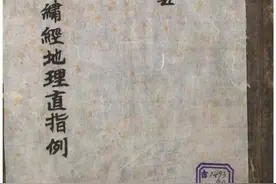 繡經地理直指例
1493